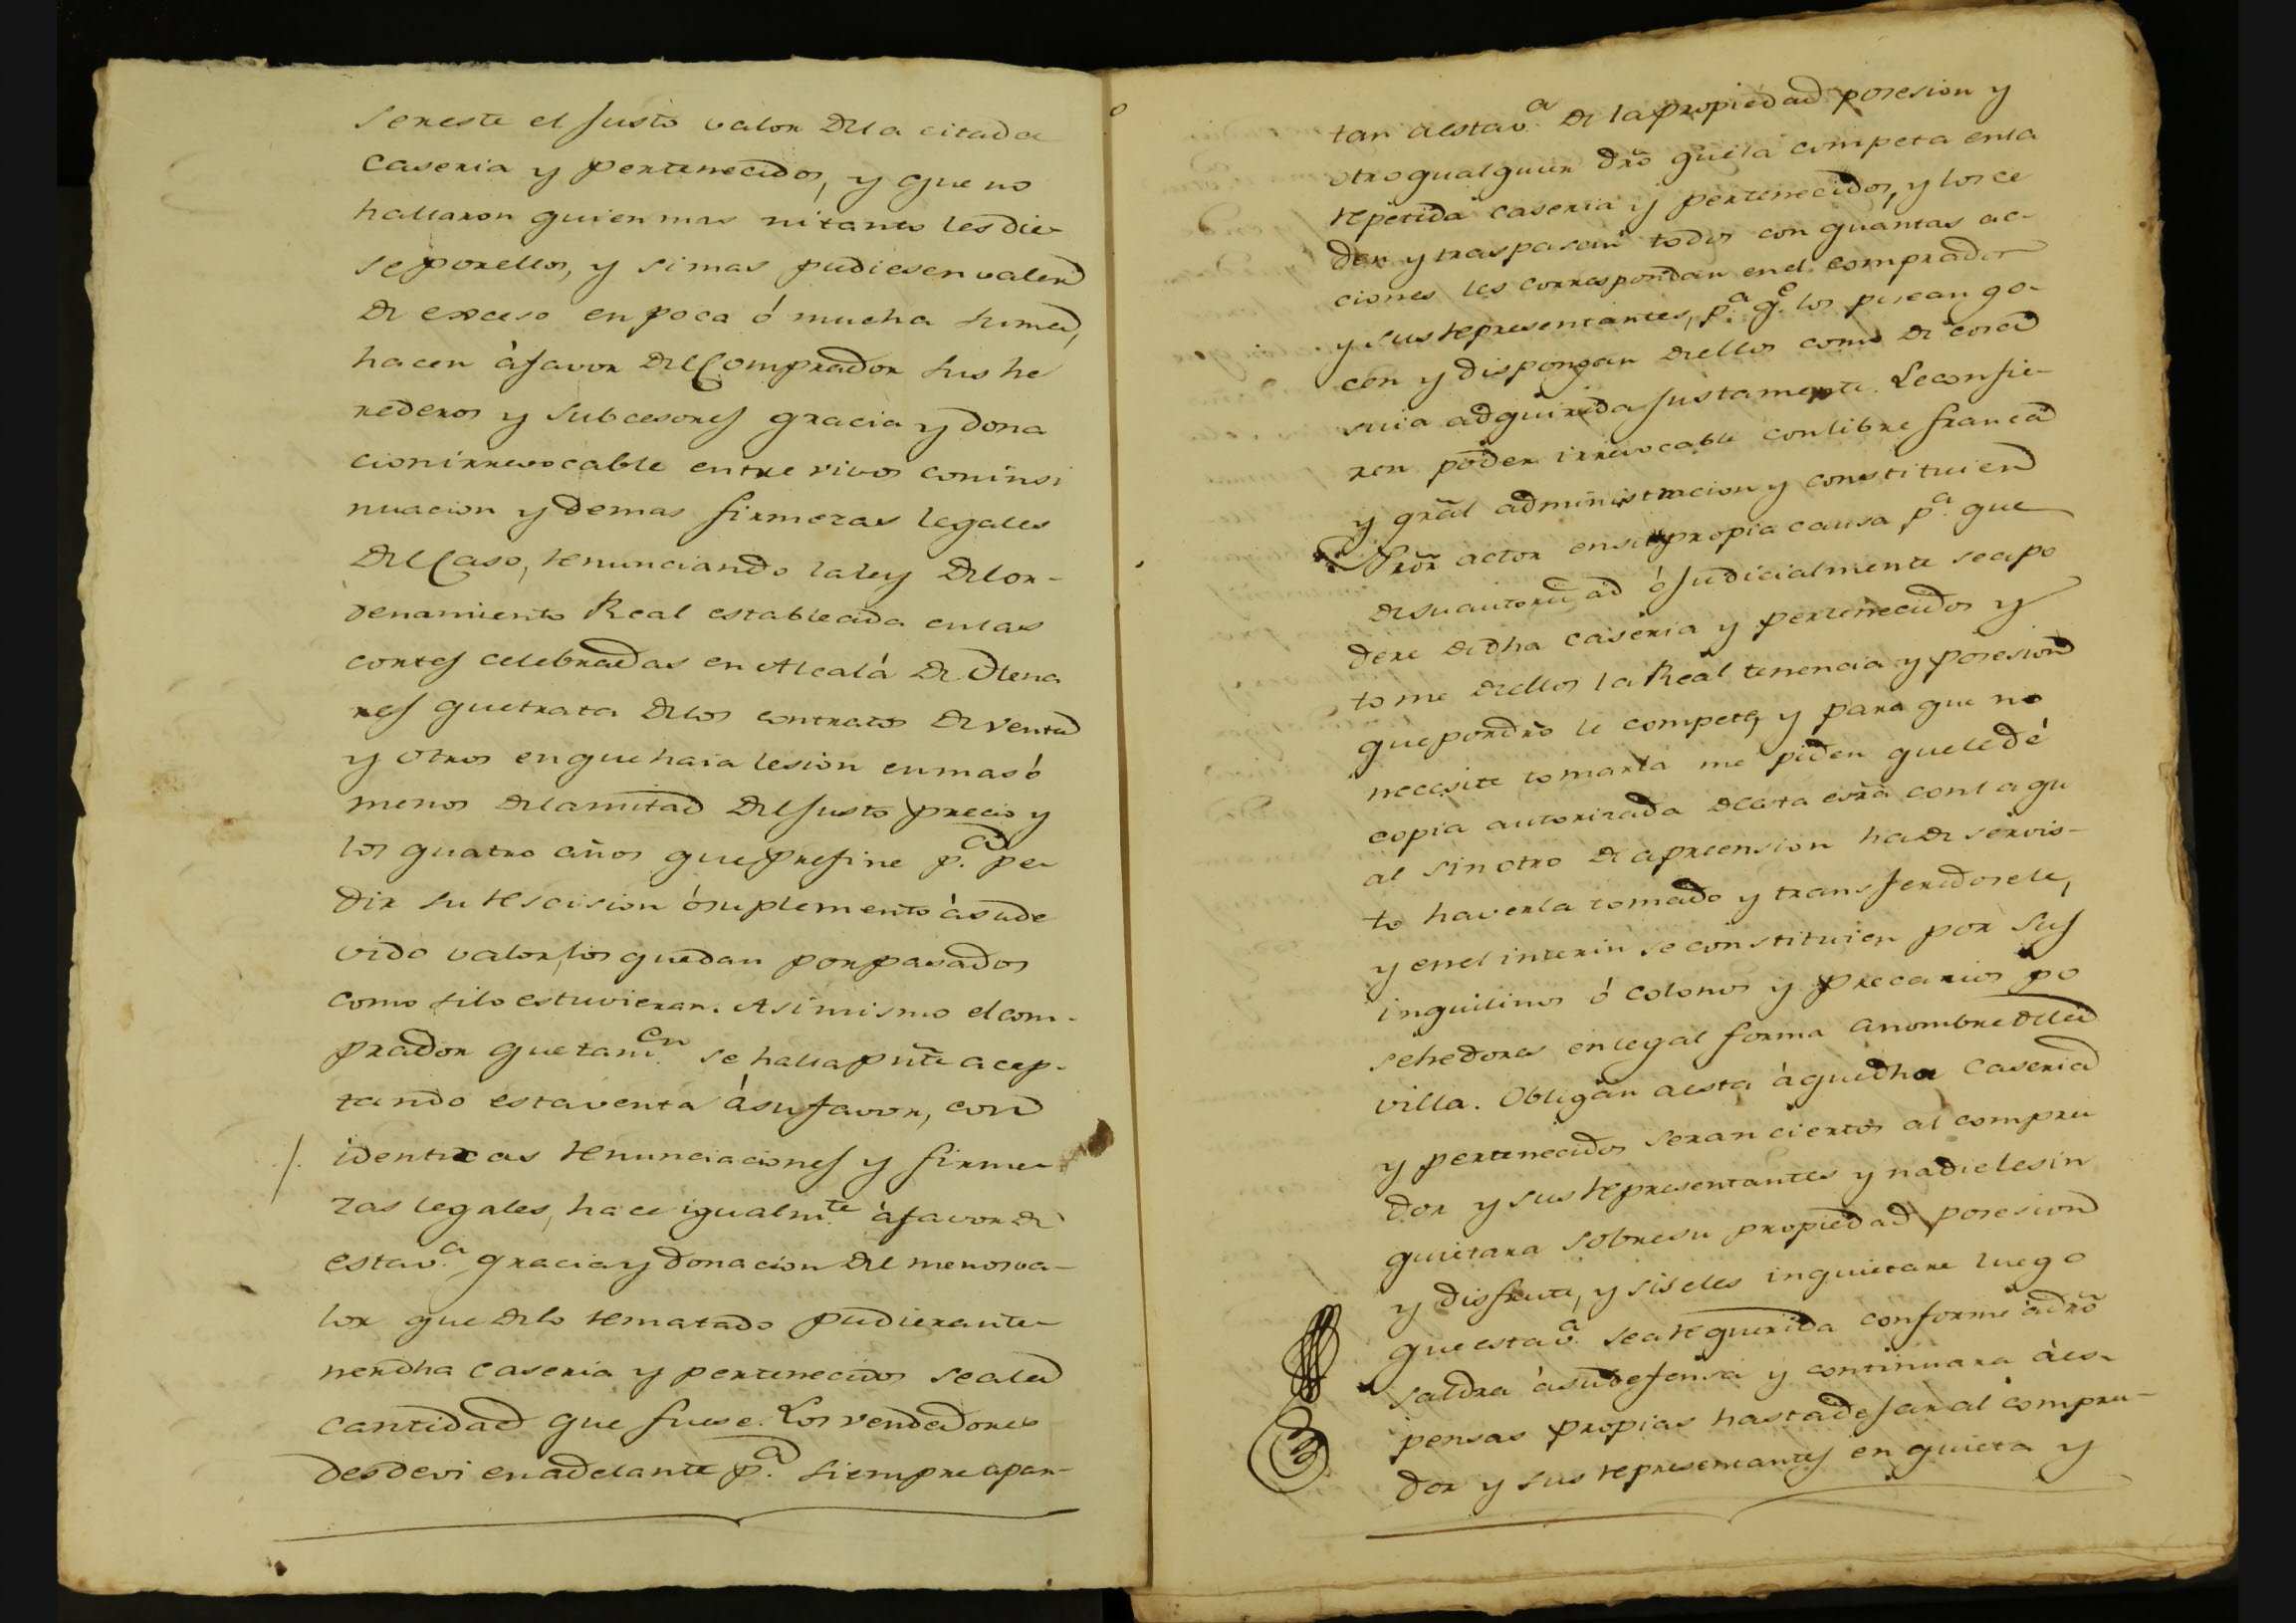 ser este el Justo valor dela citada
Caseria y pertenecidos, y que no
hallaron quien mas ni tanto les die-
se por ellos, y si mas pudiesen valer
de exceso en poca ó mucha suma,
hacen à favor del Comprador sus he
rederos y subcesores gracia y dona
cion irrevocable entre vivos con insi
nuacion y demas firmezas legales
del Caso, renunciando la ley del or-
denamiento Real establecida en las
cortes celebradas en Alcalá de Hena
res que trata delos contratos de venta
y otros en que haia lesion en mas ó
menos dela mitad del Justo precio y
los quatro años que prefine p.ª pe
dir su rescision ó suplemento à su de
vido valor, los quedan por pasados
como si lo estuvieran. Asi mismo el com-
prador que tam.en se halla pñte acep-
tando esta venta à su favor, con
identicas renunciaciones y firme-
zas legales, hace igualm.te à favor de
esta v.ª gracia y donacion del menos va-
lor que delo rematado pudieran te-
ner dha caseria y pertenecidos sea la
cantidad que fuese. Los vendedores
desde oi en adelante p.ª siempre apar-
tan a esta v.ª de la propiedad posesion y
otro qualquier dr̃o que la competa en la
repetida caseria y pertenecidos, y los ce
den y traspasan todos con quantas ac-
ciones les correspondan en el comprador
y sus representantes, p.ª q.e los posean go-
cen y dispongan de ellos como de cosa
suia adquirida Justamente. Le confie-
ren poder irrevocable con libre franca
y gr̃al administracion y constituien
Pror̃ actor en su propia causa p.ª que
de su autoridad ó Judicialmente se apo
dere de dha caseria y pertenecidos y
tome de ellos la Real tenencia y posesion
que por dr̃o le compete, y para que no
necesite tomarla me piden que le dé
copia autorizada de esta esrã con la qu
al sin otro de apreension ha de ser vis-
to haverla tomado y transferidosele,
y en el interin se constituien por sus
inquilinos ó colonos y precarios po
sehedores en legal forma a nombre de la
villa. Obligãn a esta à que dha Caseria
y pertenecidos seran ciertos al compra
dor y sus representantes y nadie les in
quietara sobre su propiedad posesion
y disfrute, y si se les inquietare luego
que esta v.ª sea requerida conforme à dr̃o
saldra à su defensa y continuara à es-
pensas propias hasta dejar al compra-
dor y sus representantes en quieta y